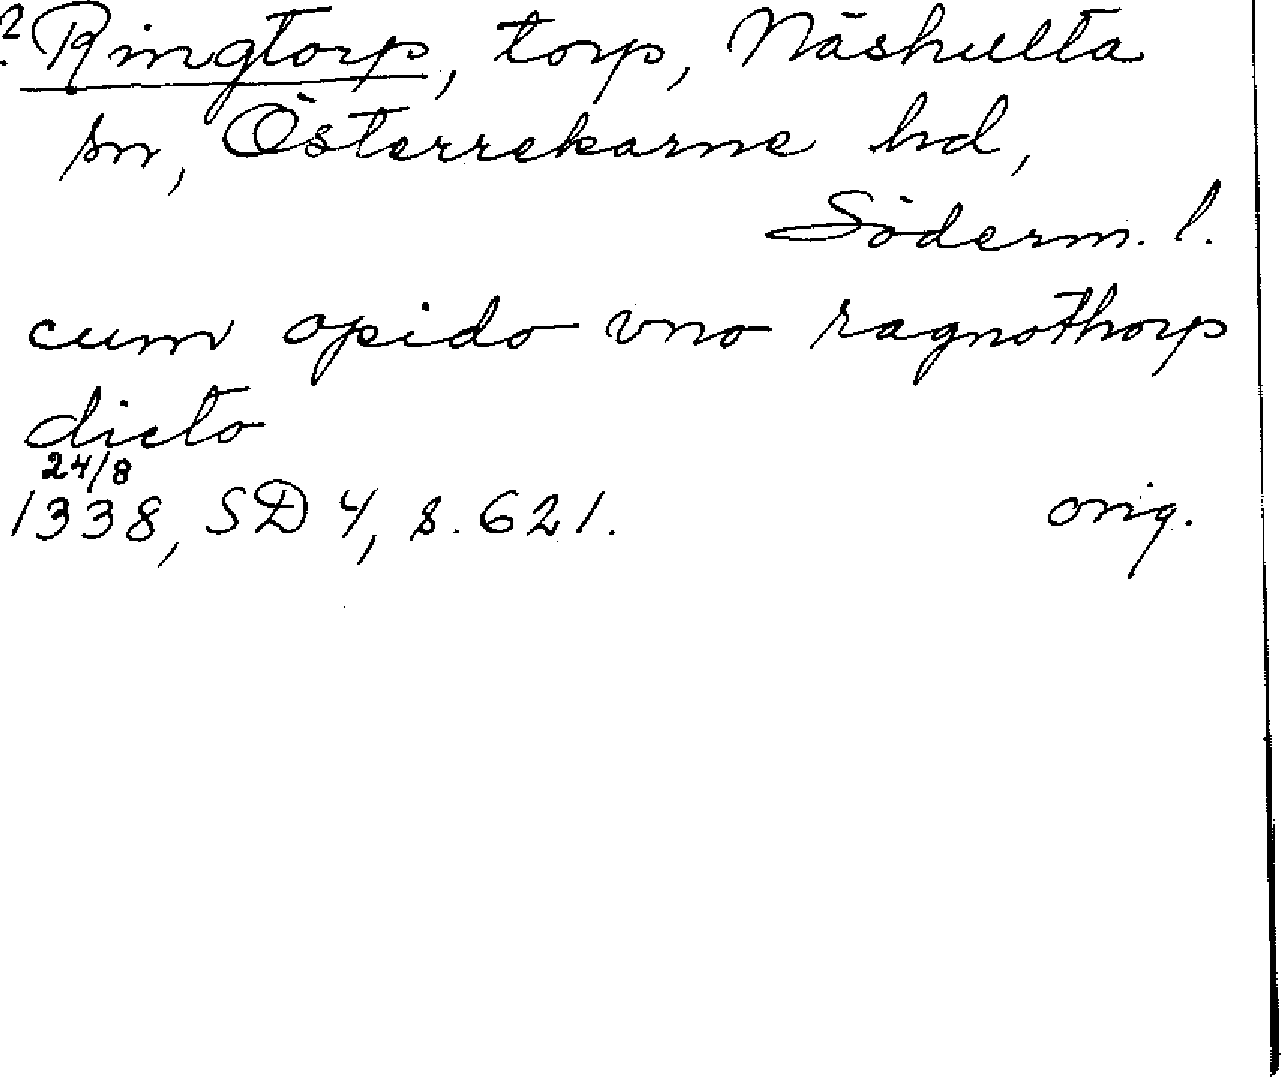 ? Ringtorp, torp, Näshulta
sn, Österrekarne hd,
Söderm. l.
cum opido vno ragnothorp
dicto
24/8
1338, SD 4, s. 621. orig.